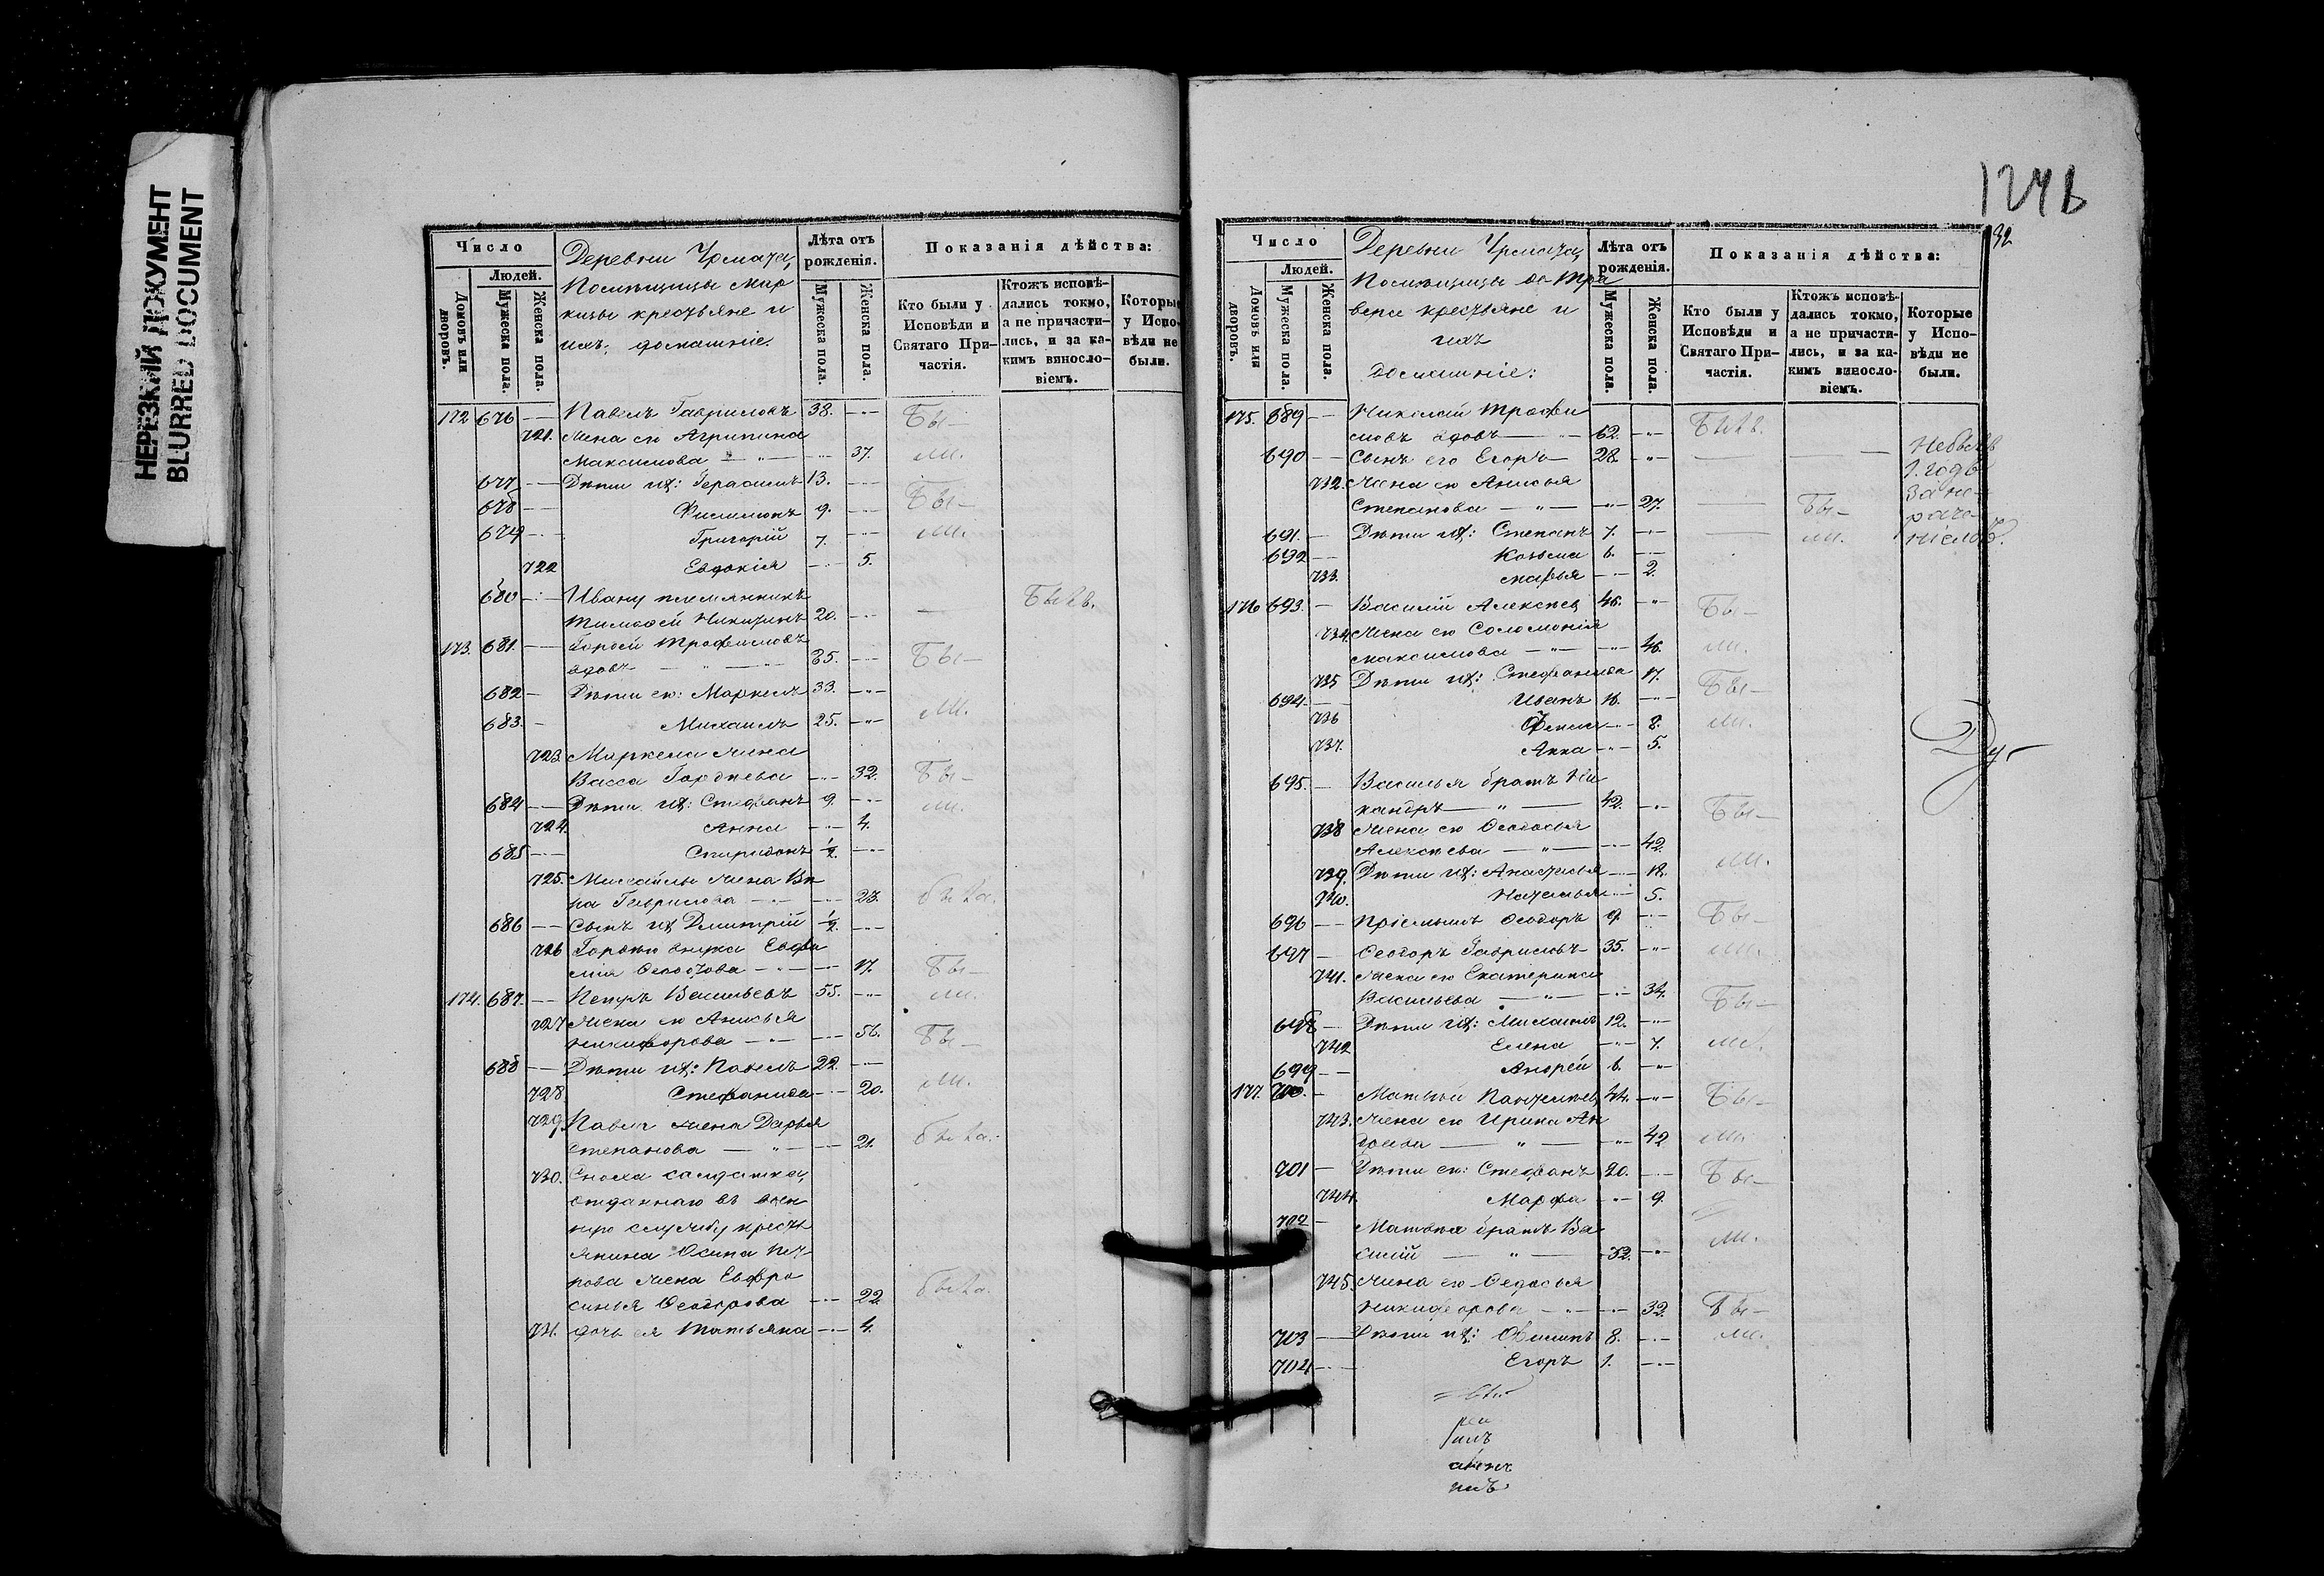 НЕРЕЗКИЙ ДОКУМЕНТ
BLURRED DOCUMENT
Число
Людей.
Домовъ или дворовъ.
Мужеска пола.
Женска пола.
Деревни Урмача,
Помѣщицы Мар
кизы крестьяне и
ихъ домашніе.
Лѣта отъ рожденія.
Мужеска пола.
Женска пола.
Показанія дѣйства:
Кто были у Исповѣди и Святаго При-частія.
Ктожъ исповѣ-дались токмо, а не причасти-лись, и за ка-кимъ винословіемъ.
Которые у Испо-вѣди не были.
172 676 Павелъ Гавриловъ 38. Бы-
721. Жена его Агрипина
Максимова 37. ли.
677 Дѣти их: Герасимъ 13.
678 Филимонъ 9. Бы-
679 Григорій 7. ли.
722 Евдокія 5.
680 Ивану племянникъ
Тимофей Никитинъ 20. Былъ.
173. 681. Гордей Трофимовъ
вдовъ 85. Бы-
682 Дѣти его: Маркелъ 33.
683. Михаилъ 25. ли.
723 Маркела жена
Васса Гордѣева 32. Бы-
684 Дѣти их: Стефанъ 9. ли.
724. Анна 4.
685 Спиридонъ ½
725. Михайлы жена
Гаврилова 23. была.
686 Сынъ их Дмитрій ½
726 Гордѣю внука Евфи
мія 17. Бы-
174. 687. Петръ Васильевъ 55. ли.
727 Жена его Анисья
Никифорова 56. Бы-
688 Дѣти их: Павелъ 22.
728. Стефанида 20. ли.
729. Павла жена Дарья
Степанова 21. была.
730. Сноха салдатка,
отданнаго въ воен
ную службу кресть
янина Осипа Пет-
рова жена Евфро
синья Ѳеодорова 22 была.
731. дочь ея Татьяна 4.
124в
32
Число
Людей.
Домовъ или дворовъ.
Мужеска пола.
Женска пола.
Деревни Урмача,
Помѣщицы де Тра
верси крестьяне и
ихъ
Домашніе:
Лѣта отъ рожденія.
Мужеска пола.
Женска пола.
Показанія дѣйства:
Кто были у Исповѣди и Святаго При-частія.
Ктожъ исповѣ-дались токмо, а не причасти-лись, и за ка-кимъ винословіемъ.
Которые у Испо-вѣди не были.
175. 689 Николай Трофи
мовъ вдовъ 62. Былъ.
690 Сынъ его Егоръ 28. Небылъ
1. годъ
732. Жена его Анисья за не-
Степанова 27. Бы- раче-
691. Дѣти их: Степанъ 7. ли. ніемъ.
692 Козьма 6.
733. Марья 2.
176 693. Василій Алексѣев 46. Бы-
734. Жена его Соломонія
Максимова 46. ли.
735 Дѣти их: Стефанида 17. Бы-
694. Иванъ 16.
736 Фекла 8. ли.
737. Анна 5.
695. Василья братъ Ни
кандръ 42. Бы-
738 Жена его Ѳеодосья
Алексѣева 42.
739. Дѣти их: Анастасья 12. ли.
740. Наталья 5.
696 Пріемышъ Ѳеодоръ 9. Бы-
697 Ѳеодоръ Гавриловъ 35. ли.
741. Жена его Екатерина
Васильева 34. Бы-
698 Дѣти их: Михаилъ 12.
742 Елена 7. ли.
699 Андрей 6.
177. 700. Матвѣй Пантелѣев 44. Бы-
743. Жена его Ирина Ан
дреева 42 ли.
701 Дѣти ея: Стефанъ 20. Бы-
744. Марфа 9.
702 Матвѣя братъ Ва
силій 32. ли.
745. Жена его Ѳедосья
Никифорова 32. Бы-
703 Дѣти их: Филипъ 8. ли.
704 Егоръ 1.